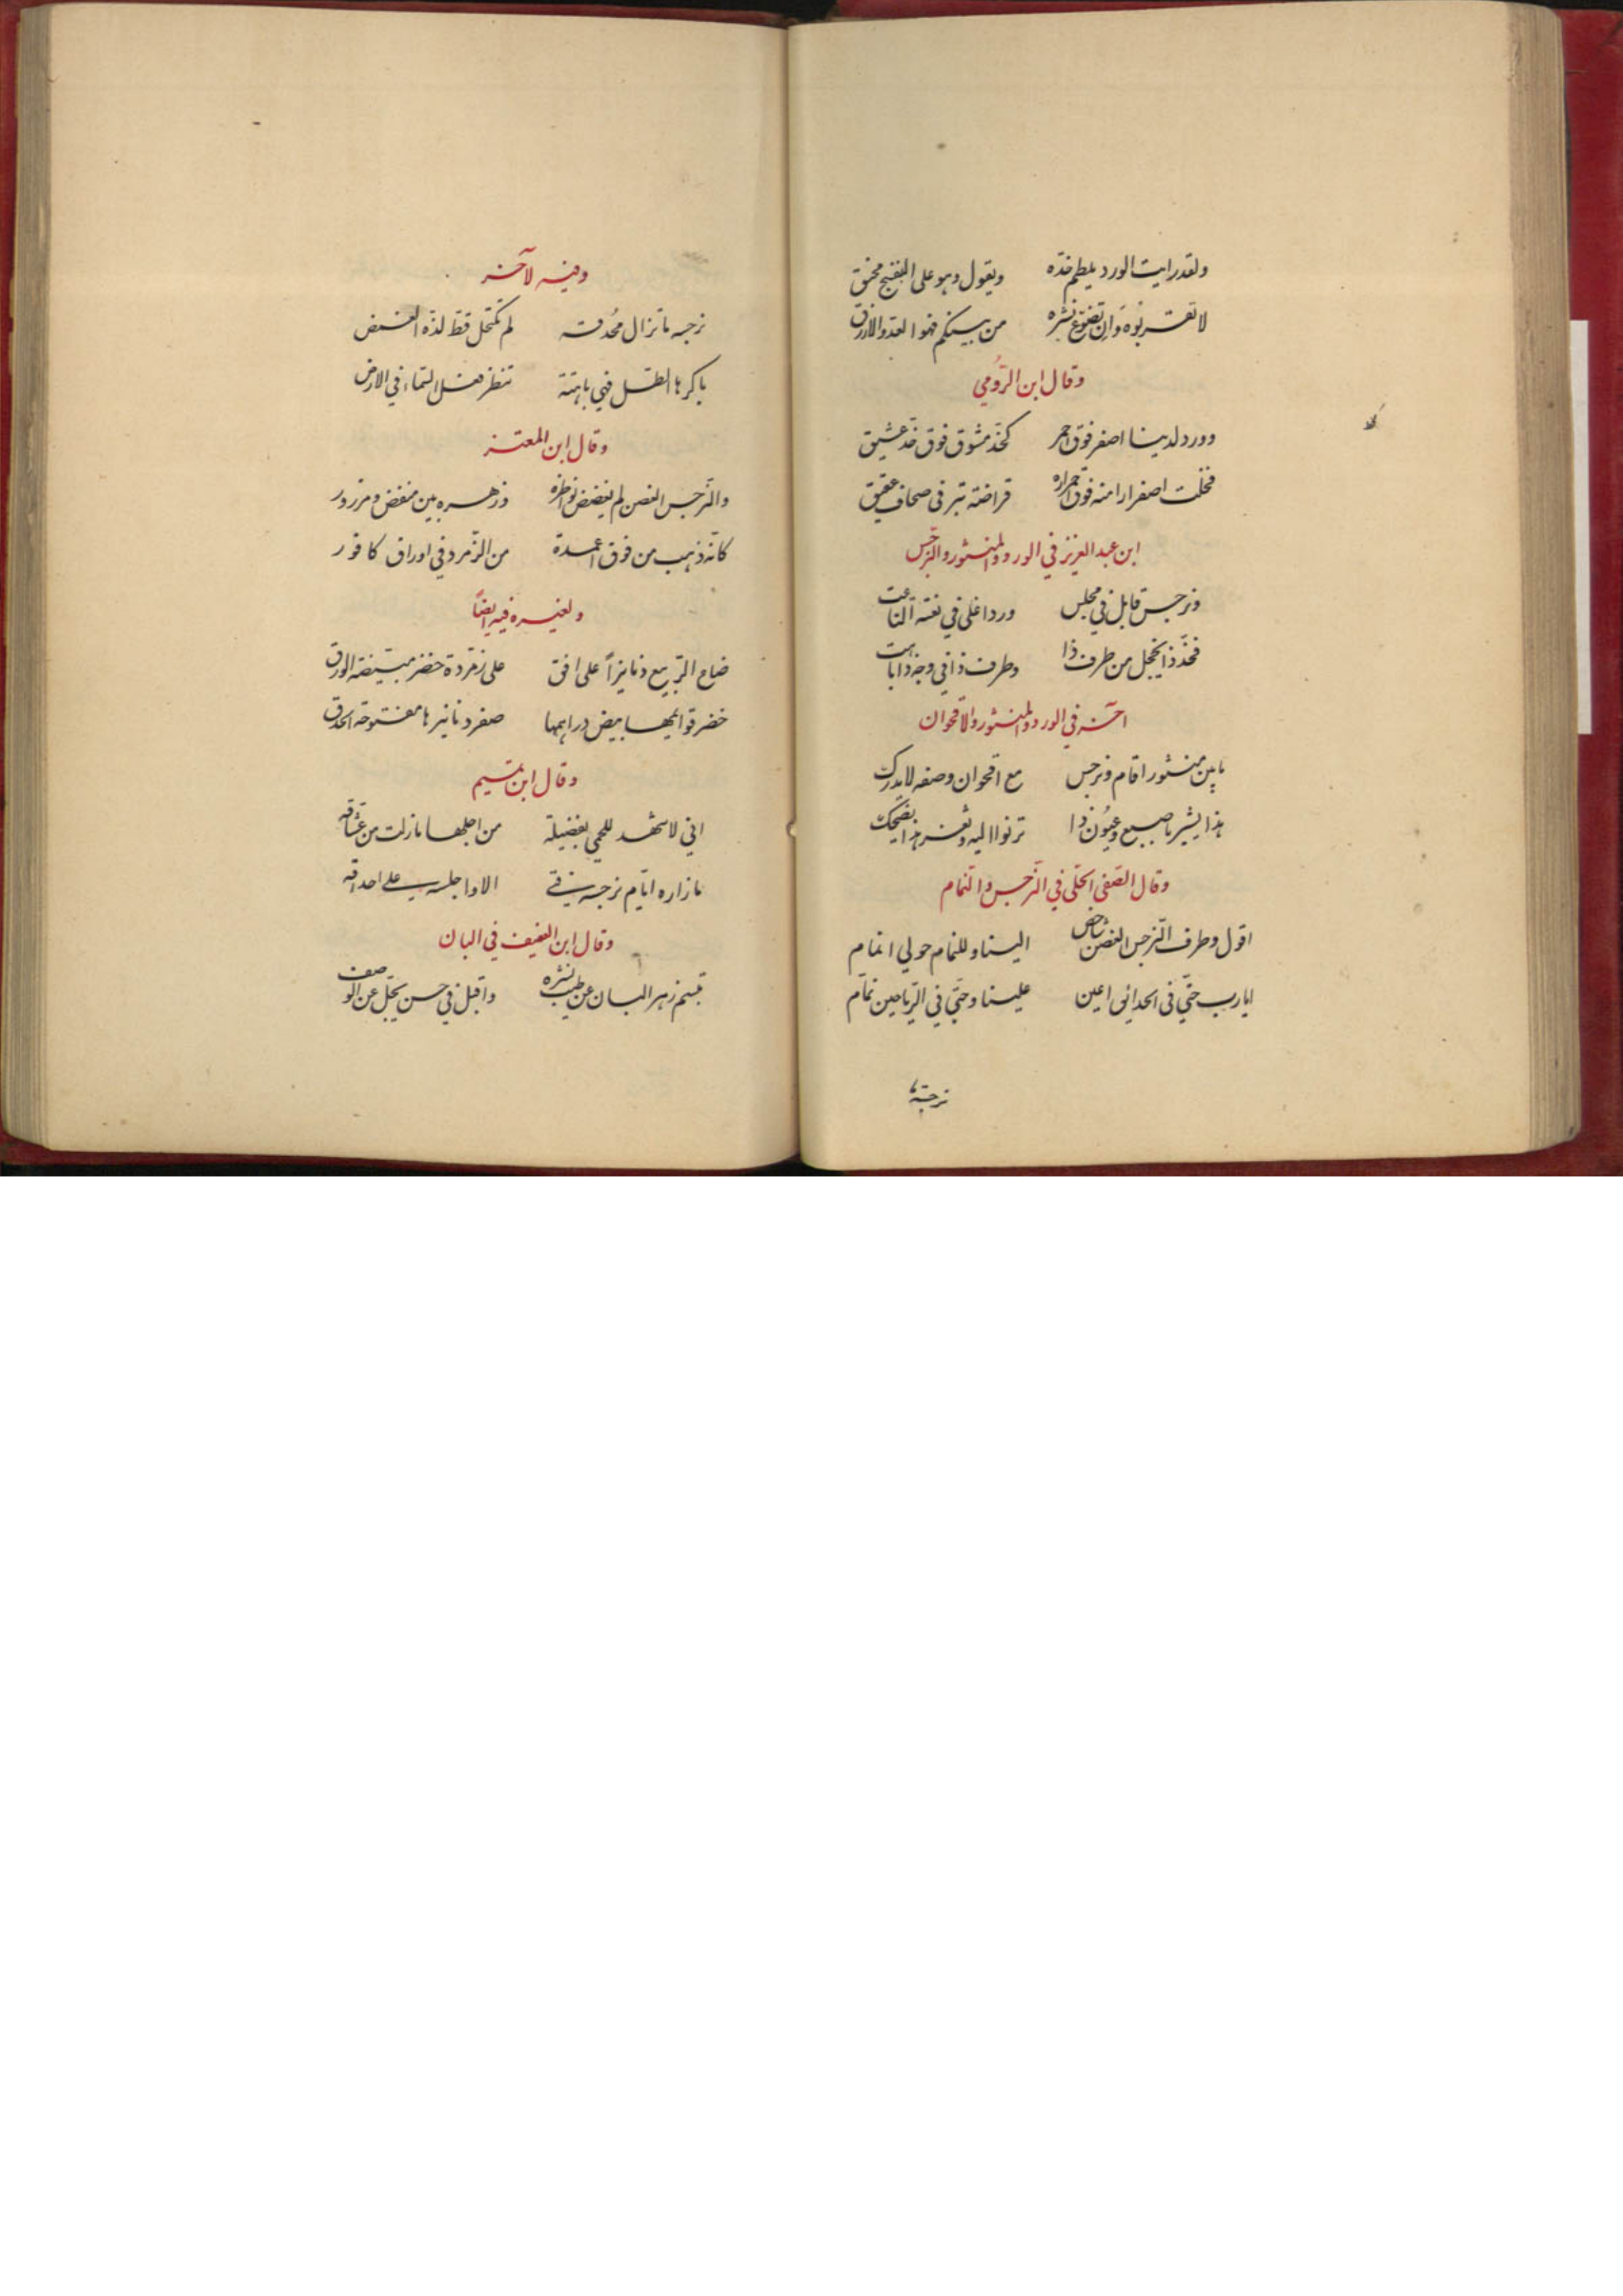 ولقد رايت الورد يلطم خدّه ويقول وهو على البنفسج محنق
لا تقربوه وان تضوّع نشره من بينكم فهو العدو الازرق
وقال ابن الرّومي
وورد لدينا اصفر فوق احمر كخدّ مشوق فوق خدّ عشيق
فخلت اصفرارا منه فوق احمراره قراضة تبر فى صحاف عقيق
ابن عبد العزيز في الورد والمنثور والنرجس
ونرجس قابل في مجلس وردا غلى في نعته الناعت
فخدّ ذا يخجل من طرف ذا وطرف ذا في وجه ذا باهت
اخر في الورد والمنثور والاقحوان
ما بين منثور اقام ونرجس مع اقحوان وصفه لا يدرك
هذا يشير باصبع وعيُون ذا ترنوا اليه وثغر هذا يضحك
وقال الصّفى الحلّى في النّرجس والنمام
اقول وطرف النّرجس الغصن شاخص الينا وللنمام حولي انمام
ايا رب حتّى فى الحدائق اعين علينا وحتّي في الرّياحين نمّام
نرجسة
وفيه لآخر
نرجسة ما تزال مُحدقة لم تكتحل قطّ لذّة الغمض
باكرها الطل فهي باهتة تنظر فعل السّماء في الارض
وقال ابن المعتز
والنّرجس الغصن لم يغضض نواظره فزهره بين منفض ومزرور
كانّه ذهب من فوق اعمدة من الزّمرد في اوراق كافور
ولغيره فيه ايضاً
ضاع الرّبيع دنانيزاً على افق على زمّردة خضر مبيّضة الورق
خضر قوايمها بيض دراهمها صفر دنانيرها مفتوحة الحدق
وقال ابن تميم
اني لاشهد للحمى بفضيلة من اجلها ما زلت من عشّاقه
ما زاره ايّام نرجسه فتى الا واجلسه على احداقه
وقال ابن العفيف في البان
تبسّم زهر البان عن طيب نشره واقبل في حسن يجلّ عن الوصف